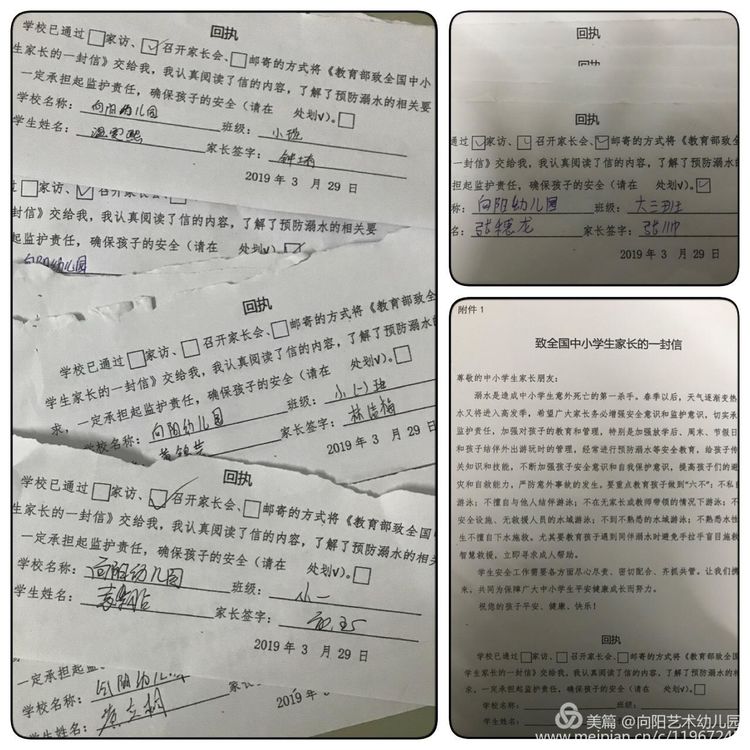 回执
学校已通过□家访、☑召开家长会、□邮寄的方式将《教育部致全国中小
生家长的一封信》交给我，我认真阅读了信的内容，了解了预防溺水的相关要
一定承担起监护责任，确保孩子的安全（请在 处划√）。□
学校名称：向阳幼儿园 班级：小班
学生姓名： 家长签字：
2019 年 3 月 29 日
□家访、☑召开家长会、
封信》交给我，我认真阅读了信的内容，了解了预防溺水的相关要
起监护责任，确保孩子的安全（请在 处划√）
向阳幼儿园
回执
学校已通过□家访、□召开家长会、□邮寄的方式将《教育部致全
学生家长的一封信》交给我，我认真阅读了信的内容，了解了预防溺水的
求，一定承担起监护责任，确保孩子的安全（请在 处划√）。□
学校名称：向阳幼儿园 班级：小(一)班
家长签字：
2019 年 3 月 29 日
回执
学校已通过□家访、☑召开家长会、□邮寄的方式将《教育部致全国中
生家长的一封信》交给我，我认真阅读了信的内容，了解了预防溺水的相关
一定承担起监护责任，确保孩子的安全（请在 处划√）。□
学校名称：向阳幼儿园 班级：小一
学生姓名： 家长签字：
2019 年 3 月 29 日
一定承担起监
学校名称：向阳幼儿园
学生姓名：
2019 年
回执
回执
通过☑家访、☑召开家长会、☑邮寄的方式将《教育部致全国
一封信》交给我，我认真阅读了信的内容，了解了预防溺水的
承担起监护责任，确保孩子的安全（请在 处划√）。☑
称：向阳幼儿园 班级：大三班
名：张穗龙 家长签字：张帅
2019 年 3 月 29 日
附件 1
致全国中小学生家长的一封信
尊敬的中小学生家长朋友：
溺水是造成中小学生意外死亡的第一杀手。春季以后，天气逐渐变热
水又将进入高发季，希望广大家长务必增强安全意识和监护意识，切实承
监护责任，加强对孩子的教育和管理，特别是加强放学后、周末、节假日
和孩子结伴外出游玩时的管理，经常进行预防溺水等安全教育，给孩子传
关知识和技能，不断加强孩子安全意识和自我保护意识，提高孩子们的避
灾和自救能力，严防意外事故的发生。要重点教育孩子做到“六不”：不私自
游泳；不擅自与他人结伴游泳；不在无家长或教师带领的情况下游泳；不
安全设施、无救援人员的水域游泳；不到不熟悉的水域游泳；不熟悉水性
生不擅自下水施救。尤其要教育孩子遇到同伴溺水时避免手拉手盲目施救
智慧救援，立即寻求成人帮助。
学生安全工作需要各方面尽心尽责、密切配合、齐抓共管。让我们携
来，共同为保障广大中小学生平安健康成长而努力。
祝您的孩子平安、健康、快乐！
回执
学校已通过□家访、□召开家长会、□邮寄的方式将《教育部致全国
学生家长的一封信》交给我，我认真阅读了信的内容，了解了预防溺水的
求，一定承担起监护责任，确保孩子的安全（请在 处划√）。□
学校名称： 班级：
学生姓名：
美篇 @向阳艺术幼儿园
www.meipian.cn/c/1196724